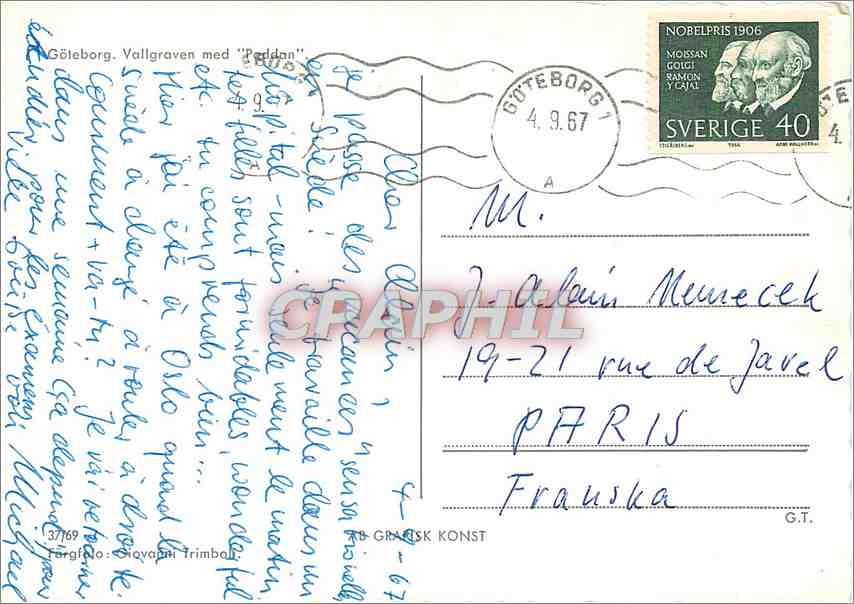 Göteborg. Vallgraven med "Paddan".
4-9-67
Cher Alain,
je passe des vacances "sensationnelles"
en Suède! Je travaille dans un
hôpital - mais seulement le matin
et filles sont formidables, wonderful
etc. tu comprends bien...
Hier j'ai été à Oslo quand la
Suède a changé à rouler à droite.
Comment vas-tu? Je vais retourner
dans une semaine (ça dépend) pour
étudier pour les examens
Michael
37/69
Färgfoto: Giovanni Trimboli.
AB GRAFISK KONST
NOBELPRIS 1906
MOISSAN
GOLGI
RAMON
Y CAJAL
SVERIGE 40
GÖTEBORG 1
4.9.67
A
M.
J-Alain Nemecek
19-21 rue de Javel
PARIS
Franska
G.T.
CRAPHIL